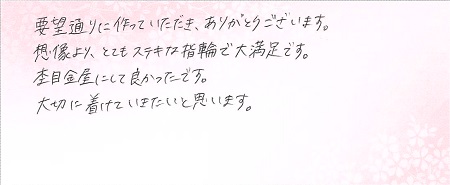 要望通りに作っていただき、ありがとうございます。
想像より、とてもステキな指輪で大満足です。
杢目金屋にして良かったです。
大切に着けていきたいと思います。